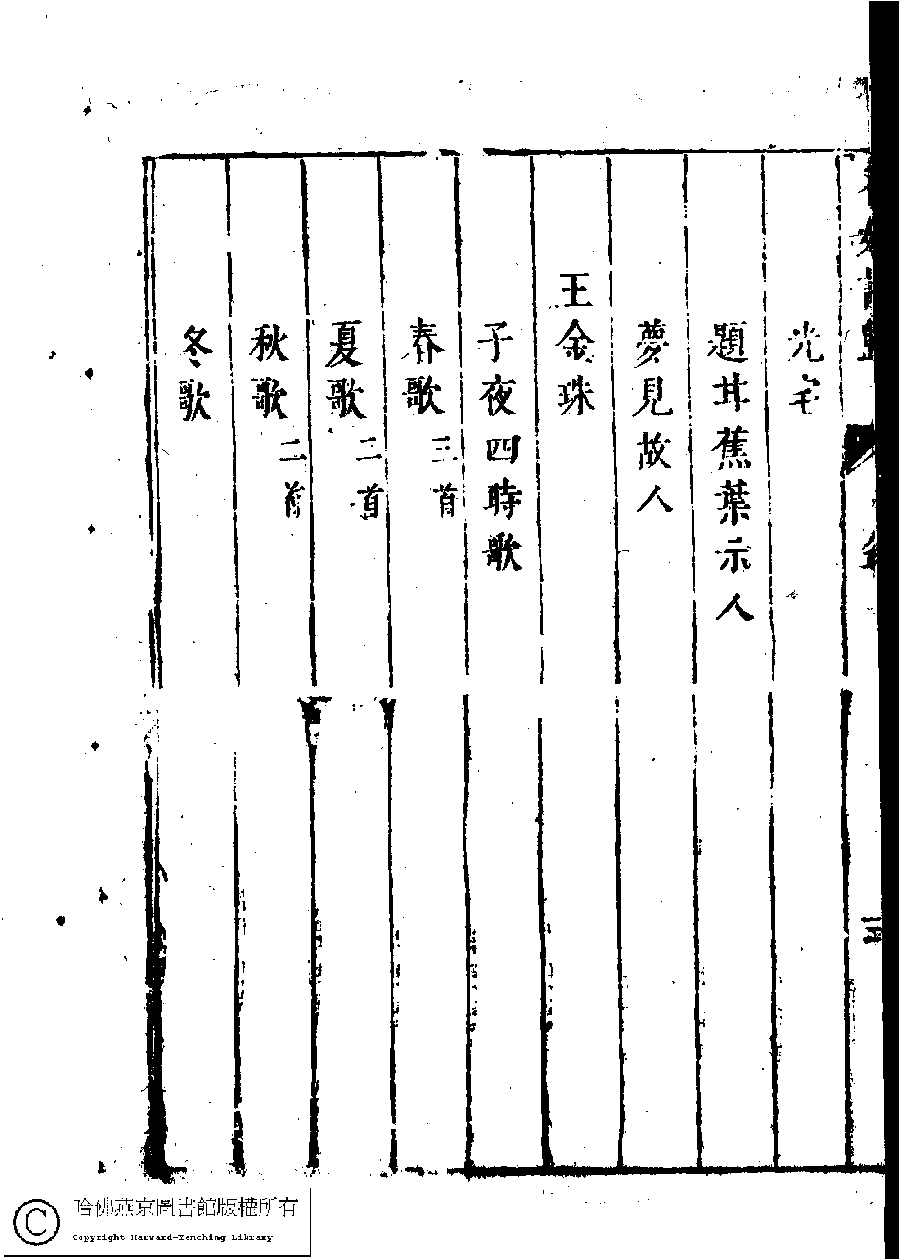 光宅
題甘蕉葉示人
夢見故人
王金珠
子夜四時歌
春歌三首
夏歌二首
秋歌二首
冬歌
哈佛燕京圖書館版權所有
Copyright Harvard-Yenching Library